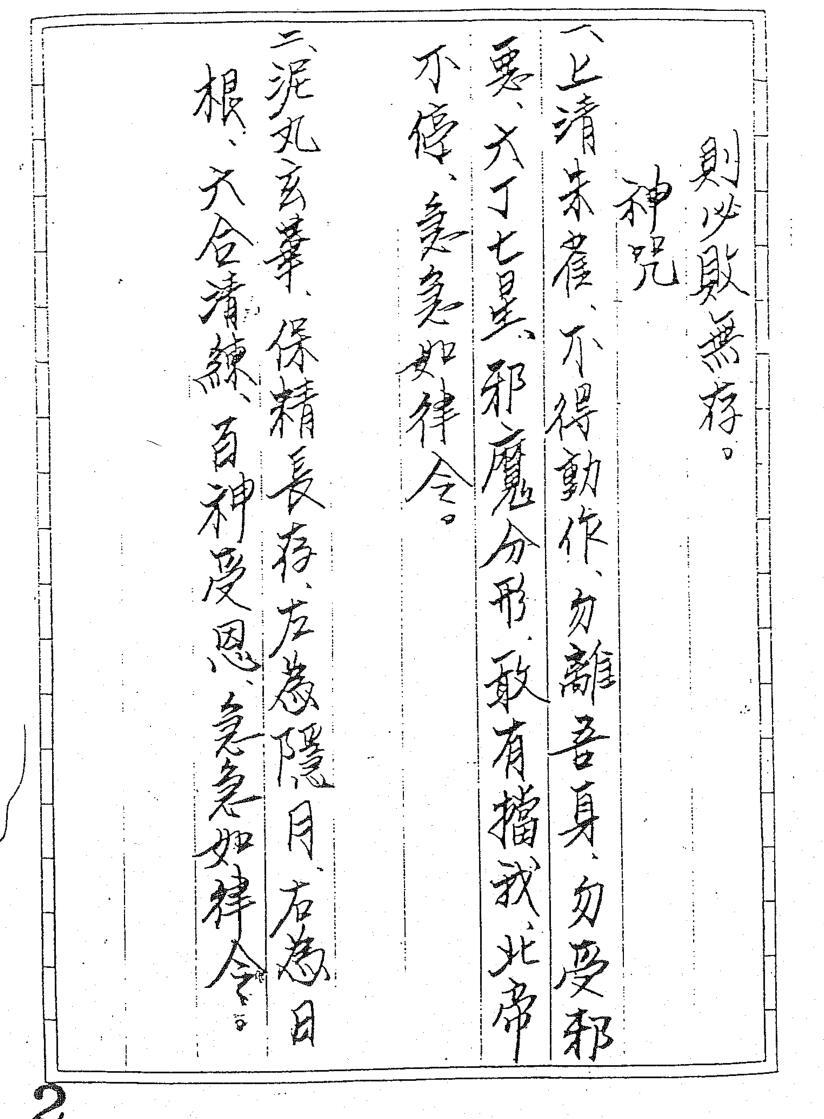 則必敗無存。
神咒
一、上清朱雀、不得動作、勿離吾身、勿受邪
惡、六丁七星、邪魔分形、敢有擋我、北帝
不停、急急如律令。
二、泥丸玄華、保精長存、左為隱月、右為日
根、六合清練、百神受恩、急急如律令。
2